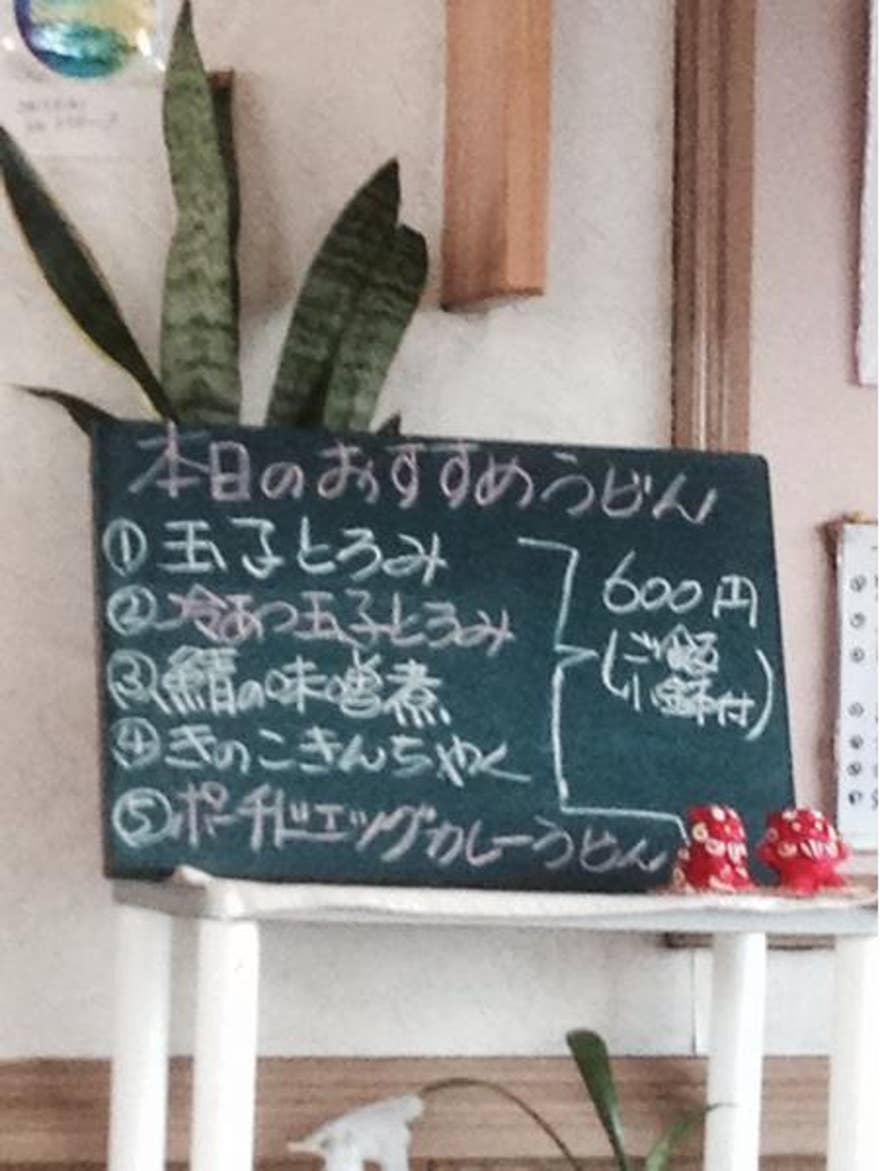 本日のおすすめうどん
①玉子とろみ
②冷あつ玉子とろみ
③鯖の味噌煮
④きのこきんちゃく
⑤ポーチドエッグカレーうどん
600円
(ご飯
小鉢付)